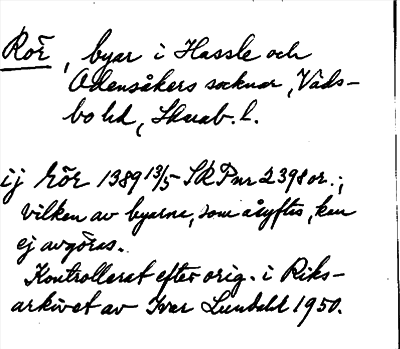 Rör, byar i Hassle och
Odensåkers socknar, Vads-
bo hd, Skarab. l.
ij Rör 1389 13/5 SRP nr 2398 or.;
vilken av byarna, som åsyftas, kan
ej avgöras.
Kontrollerat efter orig. i Riks-
arkivet av Ivar Lundahl 1950.